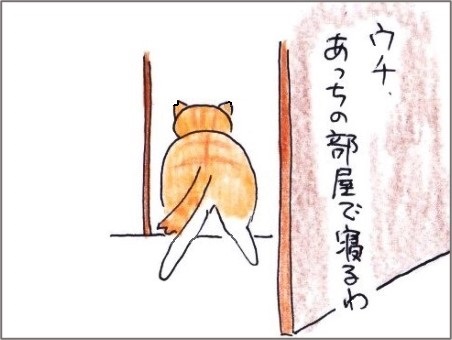 ウチ、
あっちの部屋で寝るわ